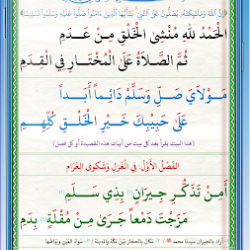 إِنَّ اللَّهَ وَمَلَائِكَتَهُ يُصَلُّونَ عَلَى النَّبِيِّ يَا أَيُّهَا الَّذِينَ آمَنُوا صَلُّوا عَلَيْهِ وَسَلِّمُوا تَسْلِيمًا
الْحَمْدُ للهِ مُنْشِي الْخَلْقِ مِنْ عَدَمِ
ثُمَّ الصَّلَاةُ عَلَى الْمُخْتَارِ فِي الْقِدَمِ
مَوْلَايَ صَلِّ وَسَلِّمْ دَائِمًا أَبَدًا
عَلَى حَبِيبِكَ خَيْرِ الْخَلْقِ كُلِّهِمِ
(هذا البيت يقرأ بعد كل بيت من أبيات هذه القصيدة أو كل فصل)
الفَصْلُ الأَوَّلُ: فِي الْغَزَلِ وَشَكْوَى الْغَرَامِ
أَمِنْ تَذَكُّرِ جِيرَانٍ بِذِي سَلَمِ
مَزَجْتَ دَمْعًا جَرَى مِنْ مُقْلَةٍ بِدَمِ